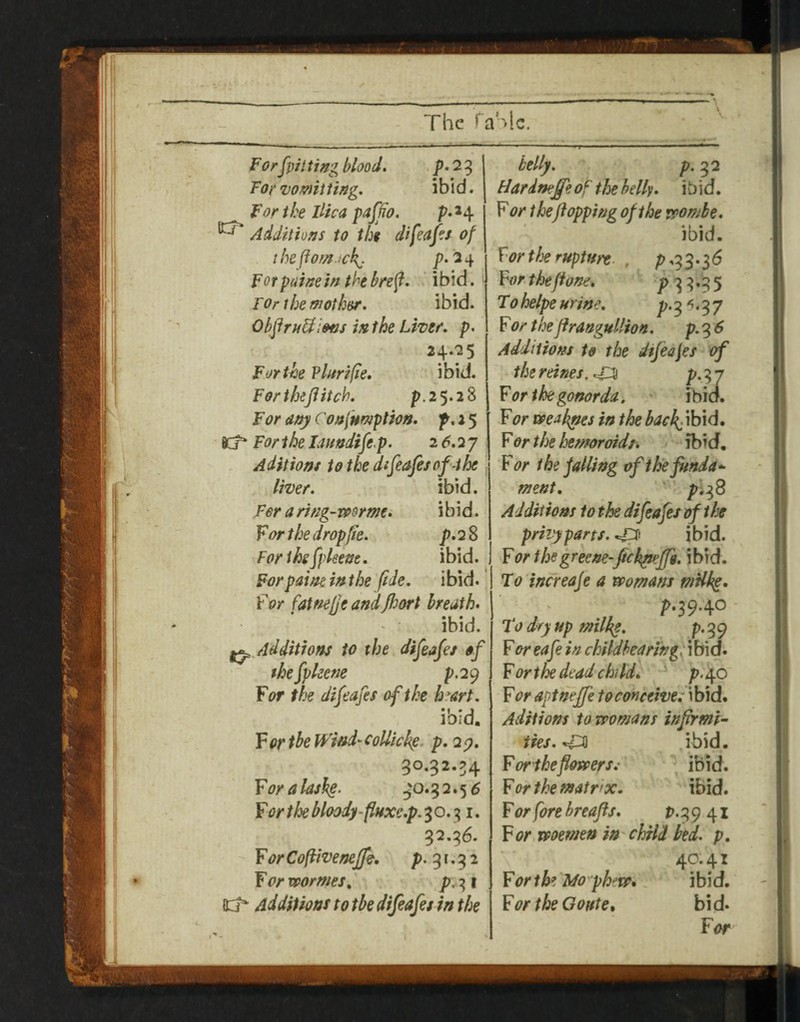 The Table.
For ſpitting blood. p.23
For vomitting. ibid.
For the Ilica paſſio. p.24
☞ Additions to the diſeaſes of
the ſtomack. p.24
For paine in the breſt. ibid.
For the mother. ibid.
Obſtructions in the Liver. p.
24.25
For the Pluriſie. ibid.
For the ſtitch. p.25.28
For any Conſumption. p.25
☞ For the Iaundiſe.p. 26.27
Aditions to the diſeaſes of the
liver. ibid.
For a ring-worme. ibid.
For the dropſie. p.28
For the ſpleene. ibid.
For paine in the ſide. ibid.
For fatneſſe and ſhort breath.
ibid.
☞ Additions to the diſeaſes of
the ſpleene p.29
For the diſeaſes of the heart.
ibid.
For the Wind-collicke p. 29.
30.32.34
For a laske. 30.32.56
For the bloody-fluxe.p.30.31.
32.36.
For Coſtiveneſſe. p.31.32
For wormes. p.31
☞ Additions to the diſeaſes in the
belly. p.32
Hardneſſe of the belly. ibid.
For the ſtopping of the wombe.
ibid.
For the rupture. p.33.36
For the ſtone. p.33.35
To helpe urine. p.36.37
For the ſtrangullion. p.36
Additions to the diſeaſes of
the reines. ☜ p.37
For the gonorda. ibid.
For weaknes in the back. ibid.
For the hemoroids. ibid.
For the falling of the funda-
ment. p.38
Additions to the diſeaſes of the
privy parts. ☜ ibid.
For the greene-ſickneſſe. ibid.
To increaſe a womans milke.
p.39.40
To dry up milke. p.39
For eaſe in childbearing. ibid.
For the dead child. p.40
For aptneſſe to conceive. ibid.
Aditions to womans infirmi-
ties. ☜ ibid.
For the flowers. ibid.
For the matrix. ibid.
For ſore breaſts. p.39 41
For woemen in child bed. p.
40.41
For the Morphew. ibid.
For the Goute. bid.
For